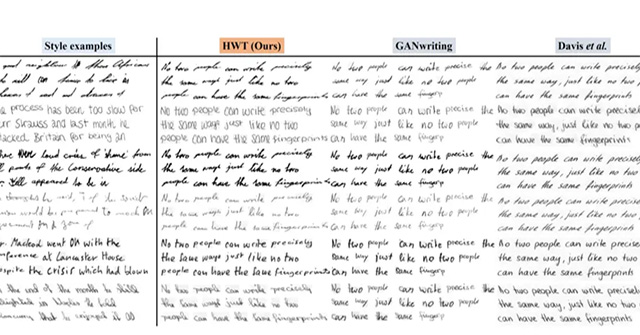 Style examples
HWT (Ours)
GANwriting
Davis et al.
good neighbour to these Africans
No two people can write precisely
the same ways just like no two
people can have the same fingerprints
No two people can write precise the
same way just like no two people
can have the same fingerp
No two people can write precisely
the same way, just like no two p
can have the same fingerprints
process has been too slow for
ur Strauss and last month, he
lacked Britain for being an
No two people can write precisely
the same ways just like no two
people can have the same fingerprints
No two people can write precise the
same way just like no two people
can have the same fingerp
No two people can write precisel
the same way, just like no two p
can have the same fingerprints
have loud cries of 'shame' from
points of the Conservative side
appeared to be in
No two people can write precisely
the same ways just like no two
people can have the same fingerprints
No two people can write precise the
same way just like no two people
can have the same fingerp
No two people can write precise
the same way, just like no two p
can have the same fingerprints
No two people can write precisely
the same ways just like no two
people can have the same fingerprints
No two people can write precise the
same way just like no two people
can have the same fingerp
No two people can write precise
the same way, just like no two p
can have the same fingerprints
r. Macleod went on with the
nference at Lancaster House
espite the crisis which had blown
No two people can write precisely
the same ways just like no two
people can have the same fingerprints
No two people can write precise the
same way just like no two people
can have the same fingerp
No two people can write precise
the same way, just like no two p
can have the same fingerprints
the end of the month to
No two people can write precisely
the same ways just like no two
people can have the same fingerprints
No two people can write precise the
same way just like no two people
can have the same fingerp
No two people can write precise
the same way, just like no two p
can have the same fingerprints